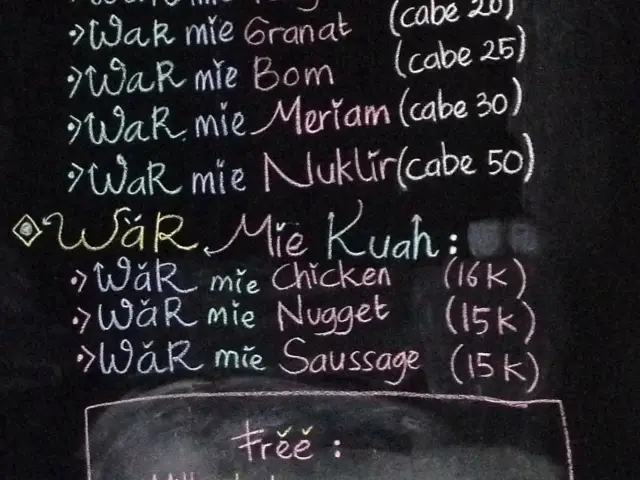 (cabe 20)
WaR mie Granat (cabe 25)
WaR mie Bom
WaR mie Meriam (cabe 30)
WaR mie Nuklir (cabe 50)
WăR Mie Kuah :
WăR mie Chicken (16K)
WăR mie Nugget (15K)
WăR mie Saussage (15K)
Frěě :